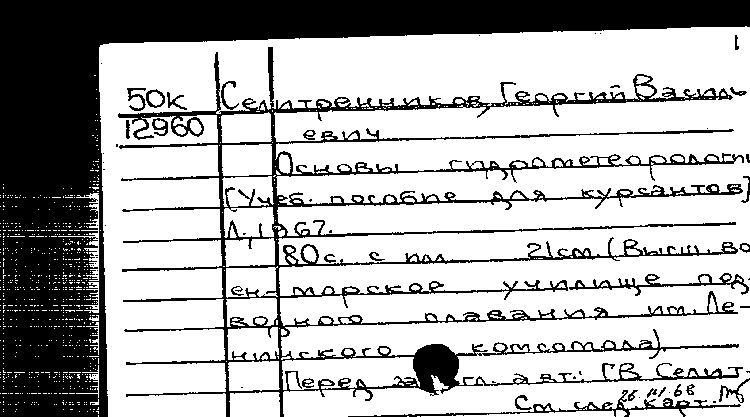 1
50к Селитренников, Георгий Василь
12960 евич
Основы гидрометеорологи
[Учеб. пособие для курсантов]
Л., 1967.
80с. с илл 21см. (Высш. во
ен-морское училище под-
водного плавания им. Ле-
нинского комсомола).
Перед загл. авт.: Г.В. Селит-
См. след. карт.
26 IV 68